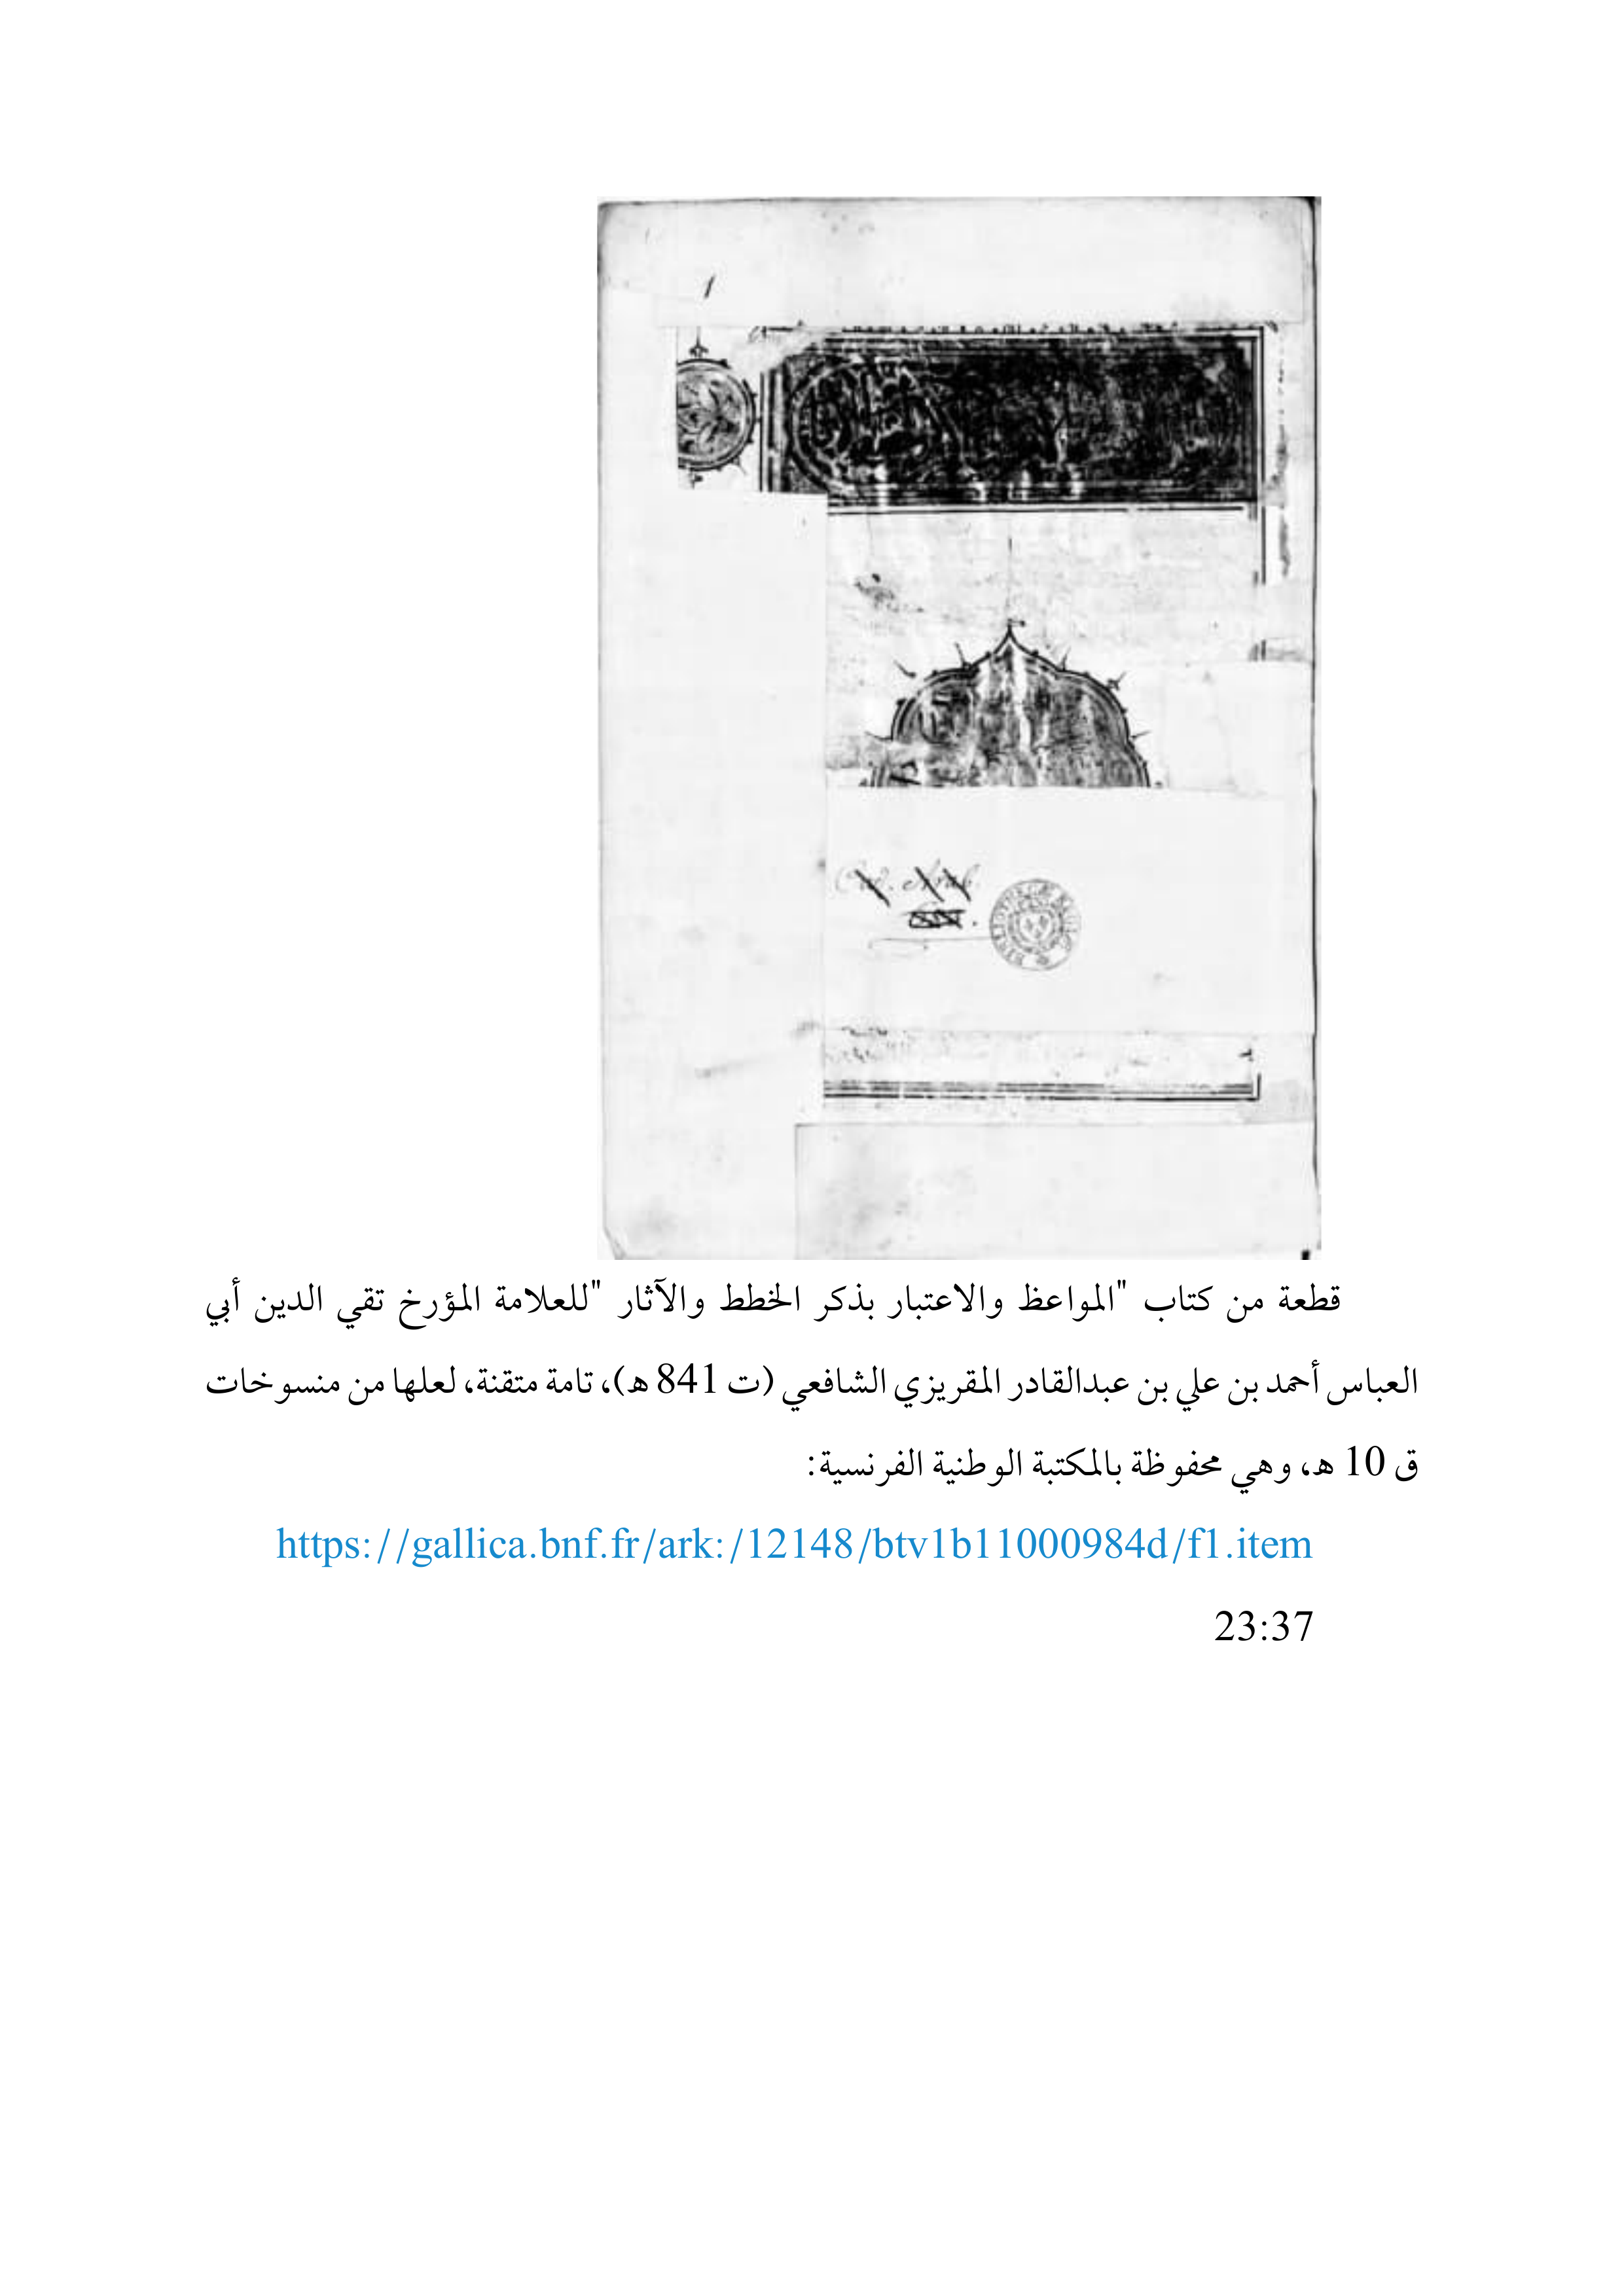 1
Cod. Arab.
قطعة من كتاب "المواعظ والاعتبار بذكر الخطط والآثار "للعلامة المؤرخ تقي الدين أبي
العباس أحمد بن علي بن عبدالقادر المقريزي الشافعي (ت 841 ه)، تامة متقنة، لعلها من منسوخات
ق 10 ه، وهي محفوظة بالمكتبة الوطنية الفرنسية:
https://gallica.bnf.fr/ark:/12148/btv1b11000984d/f1.item
23:37